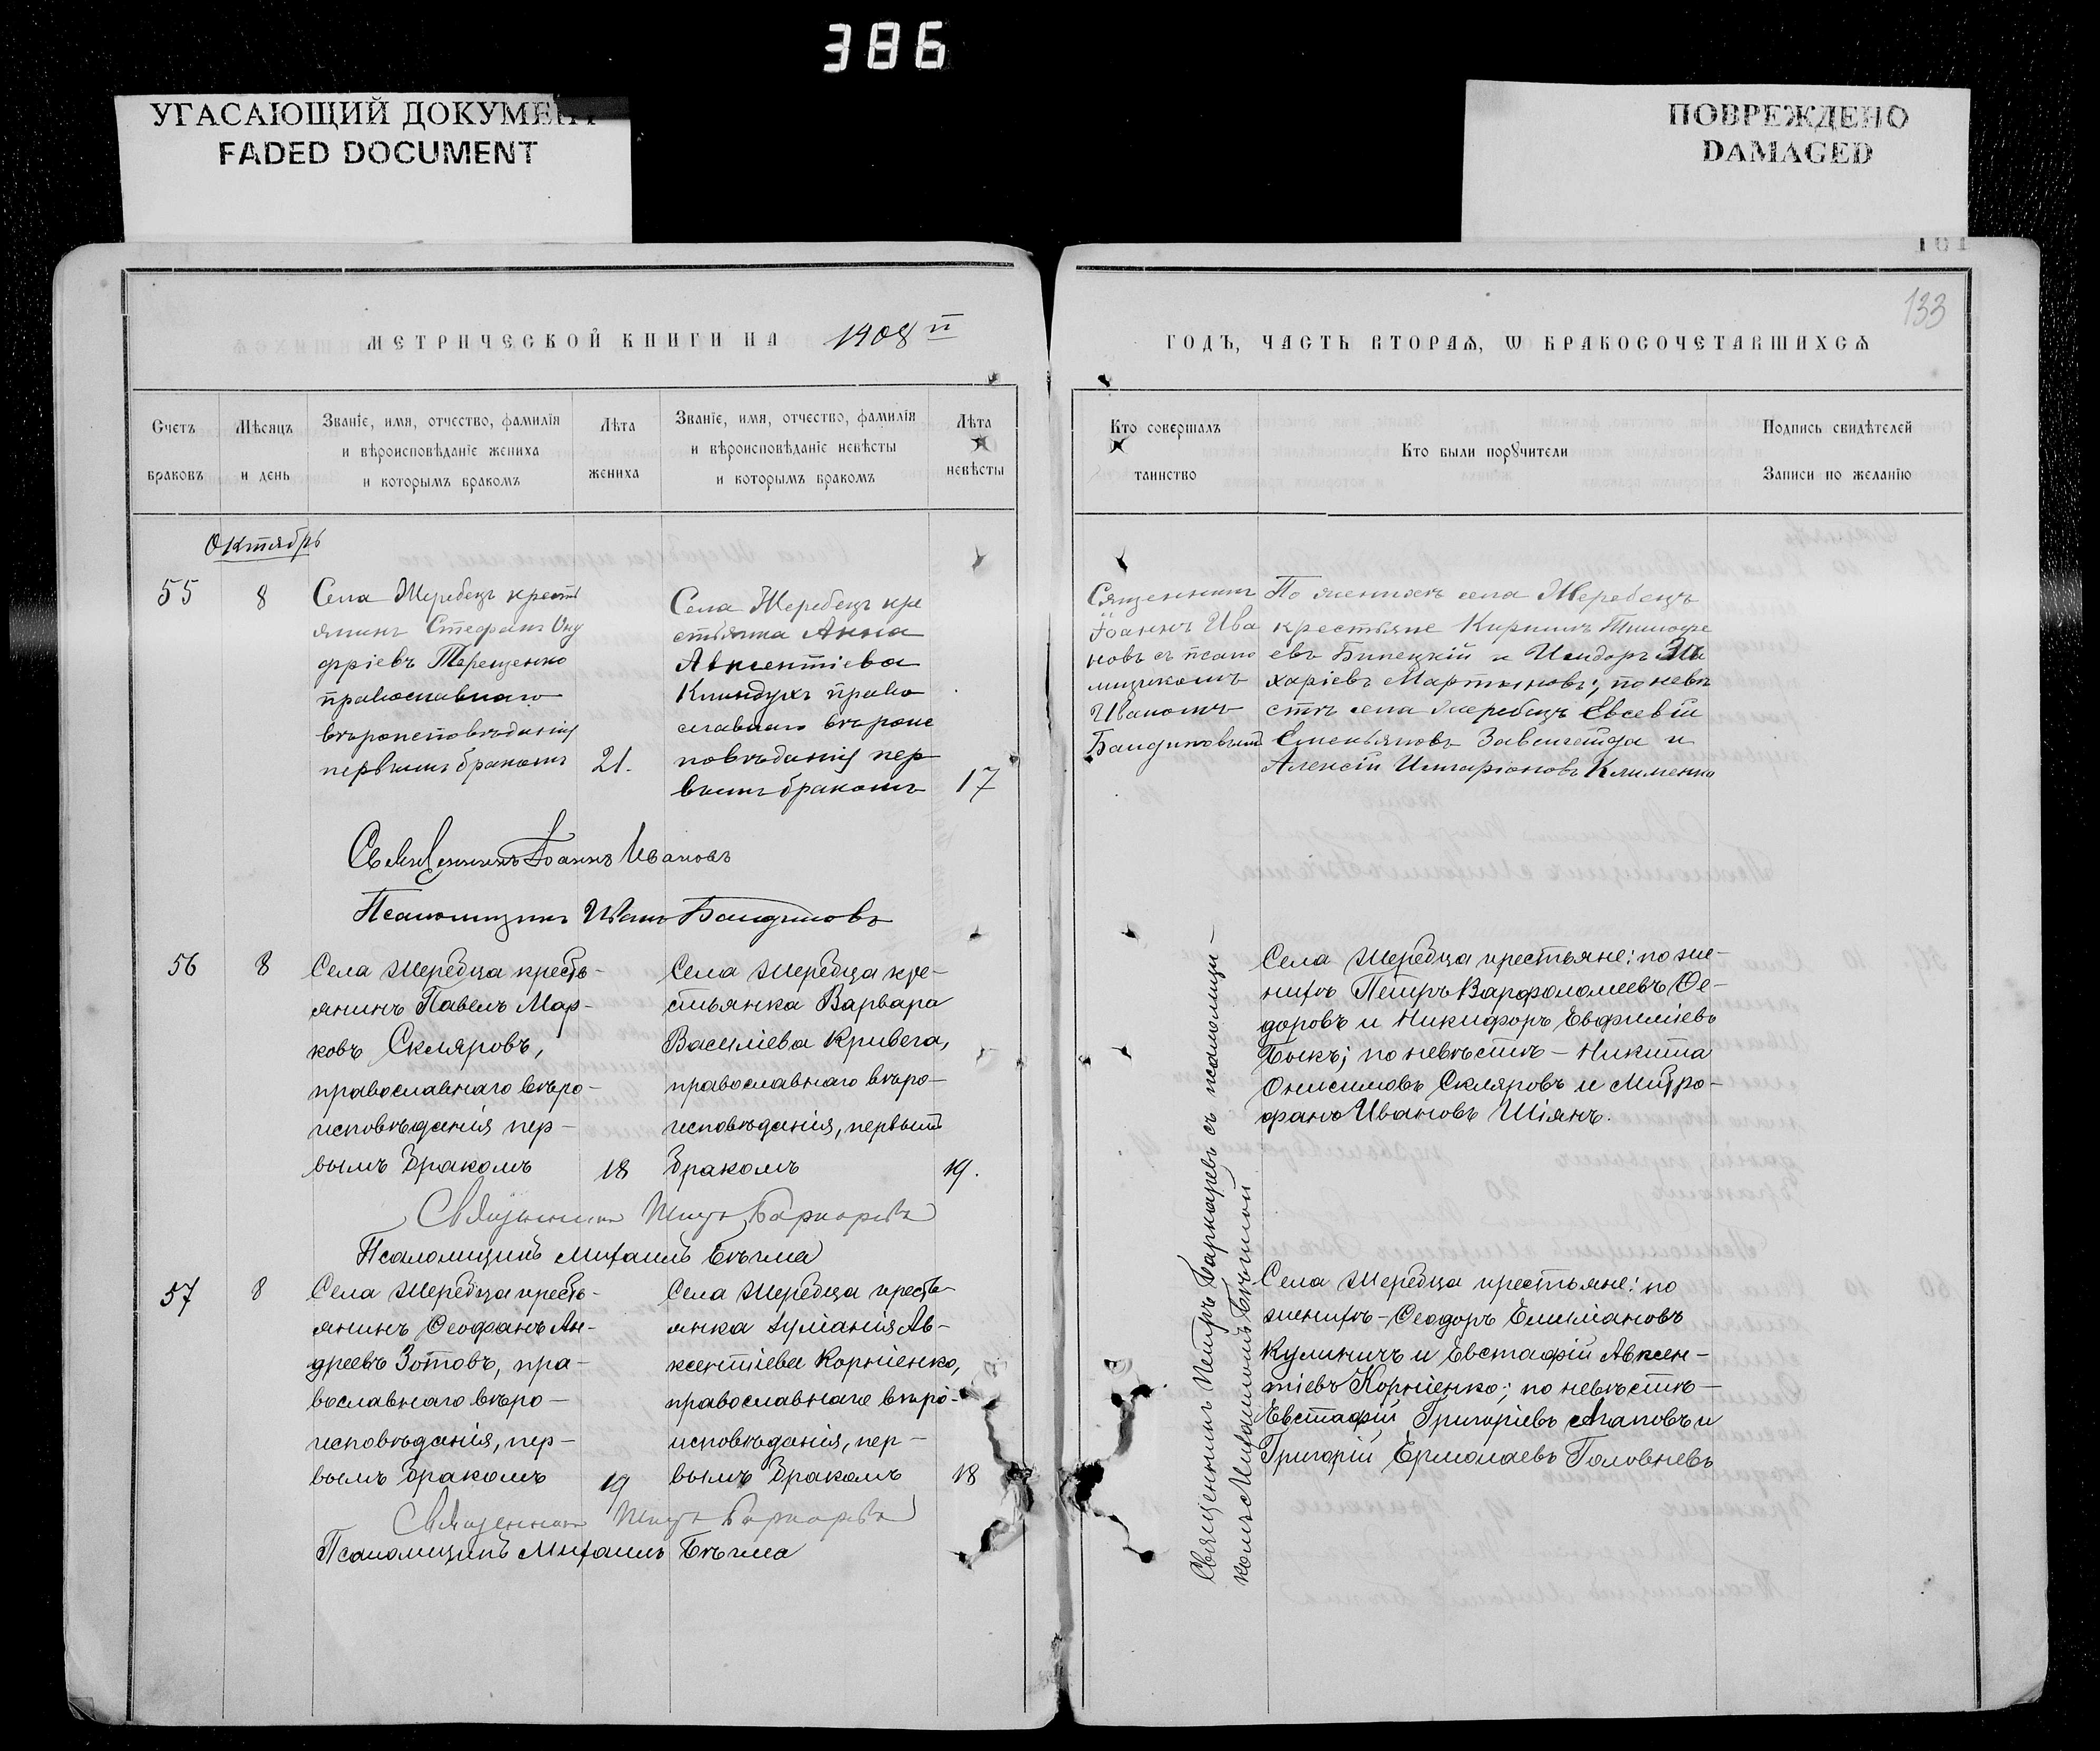 386
УГАСАЮЩИЙ ДОКУМЕНТ
FADED DOCUMENT
ПОВРЕЖДЕНО
DAMAGED
101
133
МЕТРИЧЕСКОЙ КНИГИ НА 1908 й
ГОДЪ, ЧАСТЬ ВТОРАѦ, Ѡ БРАКОСОЧЕТАВШИХСѦ
Счетъ
браковъ
Мѣсяцъ
и день
Званіе, имя, отчество, фамилія
и вѣроисповѣданіе жениха
и которымъ бракомъ
Лѣта
жениха
Званіе, имя, отчество, фамилія
и вѣроисповѣданіе невѣсты
и которымъ бракомъ
Лѣта
невѣсты
Кто совершалъ
таинство
Кто были порꙋчители
Подпись свидѣтелей
Записи по желанію
Октябрь
55
8
Села Жеребецъ кресть
янинъ Стефанъ Ону
фріевъ Терещенко
православнаго
вѣроисповѣданія
первымъ бракомъ
21.
Села Жеребецъ кре
стьянка Анна
Авксентіева
Клиндухъ право
славнаго вѣроис
повѣданія пер
вымъ бракомъ
17
Священникъ
Іоаннъ Ива
новъ съ псало
мщикомъ
Иваномъ
По женихѣ села Жеребецъ
крестьяне Кириллъ Тимофе
евъ Билецкій и Исидоръ За
харіевъ Мартыновъ; по невѣ
стѣ села Жеребецъ Евсевій
Емельяновъ и
Алексій Иларіоновъ Клименко
Священникъ Іоаннъ Ивановъ
Псаломщикъ Иванъ
56
8
Села Жеребца кресть-
янинъ Павелъ Мар-
ковъ Скляровъ,
православнаго вѣро-
исповѣданія пер-
вымъ бракомъ
18
Села Жеребца кре-
стьянка Варвара
Василіева Кривега,
православнаго вѣро-
исповѣданія, первымъ
бракомъ
19.
Священникъ Петръ Баркаревъ съ псаломщи-
комъ Михаиломъ Бѣчмой
Села Жеребца крестьяне: по же-
нихѣ Петръ Варфоломеевъ Ѳе-
доровъ и Никифоръ Евфиміевъ
Быкъ; по невѣстѣ - Никита
Онисимовъ Скляровъ и Митро-
фанъ Ивановъ Шіянъ.
Священникъ Петръ Баркаревъ
Псаломщикъ Михаилъ Бѣчма
57
8
Села Жеребца кресть-
янинъ Ѳеофанъ Ан-
дреевъ Зотовъ, пра-
вославнаго вѣро-
исповѣданія, пер-
вымъ бракомъ
19
Села Жеребца кресть-
янка Іуліанія Ав-
ксентіева Корніенко,
православнаго вѣро-
исповѣданія, пер-
вымъ бракомъ
18
Села Жеребца крестьяне: по
женихѣ - Ѳеодоръ Емиліановъ
Кулиничъ и Евстафій Авксен-
тіевъ Корніенко; по невѣстѣ -
Евстафій Григоріевъ Агаповъ и
Григорій Ермолаевъ Головневъ
Священникъ Петръ Баркаревъ
Псаломщикъ Михаилъ Бѣчма